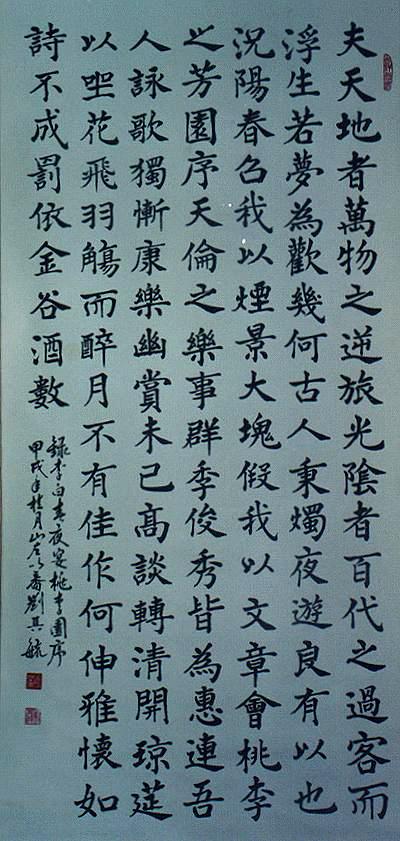 夫天地者萬物之逆旅光陰者百代之過客而
浮生若夢為歡幾何古人秉燭夜遊良有以也
況陽春召我以煙景大塊假我以文章會桃李
之芳園序天倫之樂事群季俊秀皆為惠連吾
人詠歌獨慚康樂幽賞未已高談轉清開瓊筵
以坐花飛羽觴而醉月不有佳作何伸雅懷如
詩不成罰依金谷酒數
錄李白春夜宴桃李園序
甲戌年桂月山左劉其毓